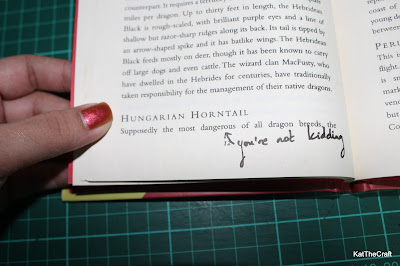 counterpart. It requires a territory
miles per dragon. Up to thirty feet in length, the Hebridean
Black is rough-scaled, with brilliant purple eyes and a line of
shallow but razor-sharp ridges along its back. Its tail is tipped by
an arrow-shaped spike and it has batlike wings. The Hebridean
Black feeds mostly on deer, though it has been known to carry
off large dogs and even cattle. The wizard clan MacFusty, who
have dwelled in the Hebrides for centuries, have traditionally
taken responsibility for the management of their native dragons.
HUNGARIAN HORNTAIL
Supposedly the most dangerous of all dragon breeds, the
you're not kidding
coast of
young de
betwee
PERU
This
flight.
is sm
mark
veno
but
Con
KatTheCraft